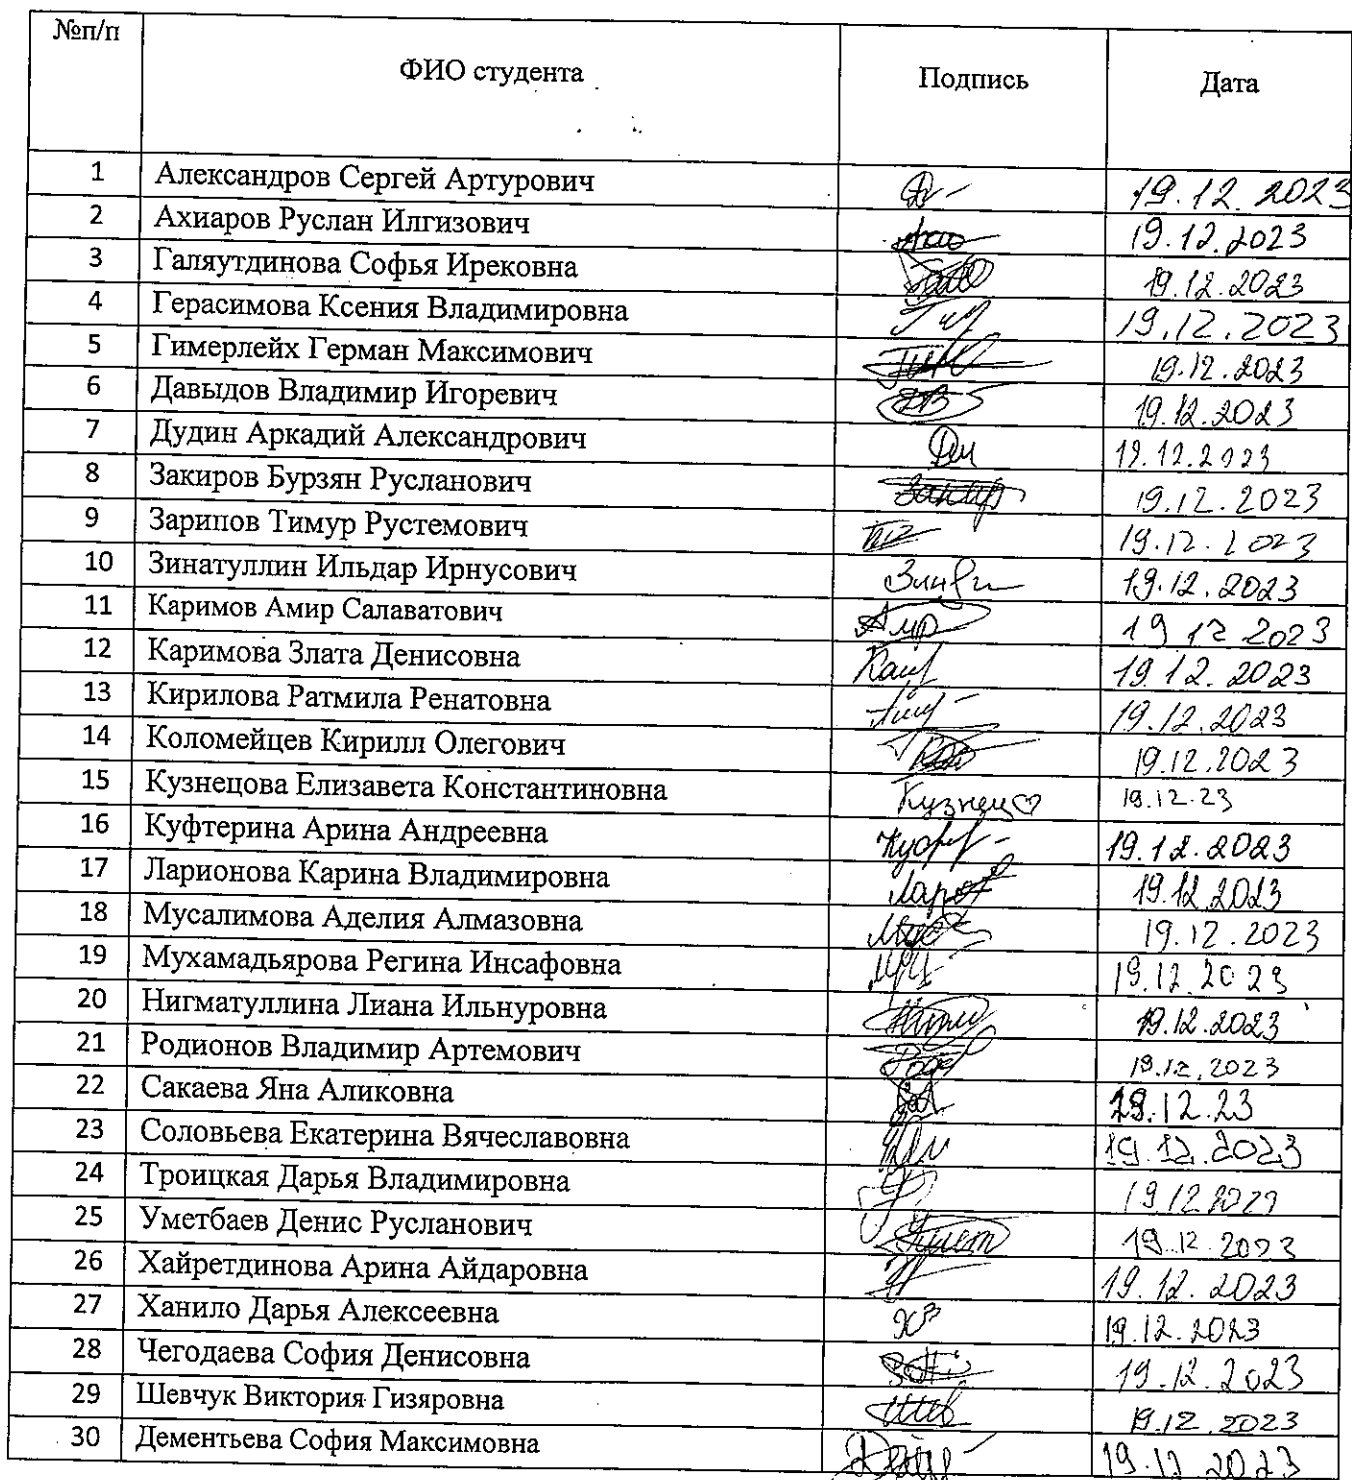 №п/п ФИО студента Подпись Дата
1 Александров Сергей Артурович 19.12.2023
2 Ахиаров Руслан Илгизович 19.12.2023
3 Галяутдинова Софья Ирековна 19.12.2023
4 Герасимова Ксения Владимировна 19.12.2023
5 Гимерлейх Герман Максимович 19.12.2023
6 Давыдов Владимир Игоревич 19.12.2023
7 Дудин Аркадий Александрович 19.12.2023
8 Закиров Бурзян Русланович 19.12.2023
9 Зарипов Тимур Рустемович 19.12.2023
10 Зинатуллин Ильдар Ирнусович 19.12.2023
11 Каримов Амир Салаватович 19 12 2023
12 Каримова Злата Денисовна 19.12.2023
13 Кирилова Ратмила Ренатовна 19.12.2023
14 Коломейцев Кирилл Олегович 19.12.2023
15 Кузнецова Елизавета Константиновна Кузнец 19.12.23
16 Куфтерина Арина Андреевна 19.12.2023
17 Ларионова Карина Владимировна 19.12.2023
18 Мусалимова Аделия Алмазовна 19.12.2023
19 Мухамадьярова Регина Инсафовна 19.12.2023
20 Нигматуллина Лиана Ильнуровна 19.12.2023
21 Родионов Владимир Артемович 19.12.2023
22 Сакаева Яна Аликовна 19.12.23
23 Соловьева Екатерина Вячеславовна 19.12.2023
24 Троицкая Дарья Владимировна
25 Уметбаев Денис Русланович 19.12.2023
26 Хайретдинова Арина Айдаровна 19.12.2023
27 Ханило Дарья Алексеевна 19.12.2023
28 Чегодаева София Денисовна 19.12.2023
29 Шевчук Виктория Гизяровна 19.12.2023
30 Дементьева София Максимовна 19.12.2023